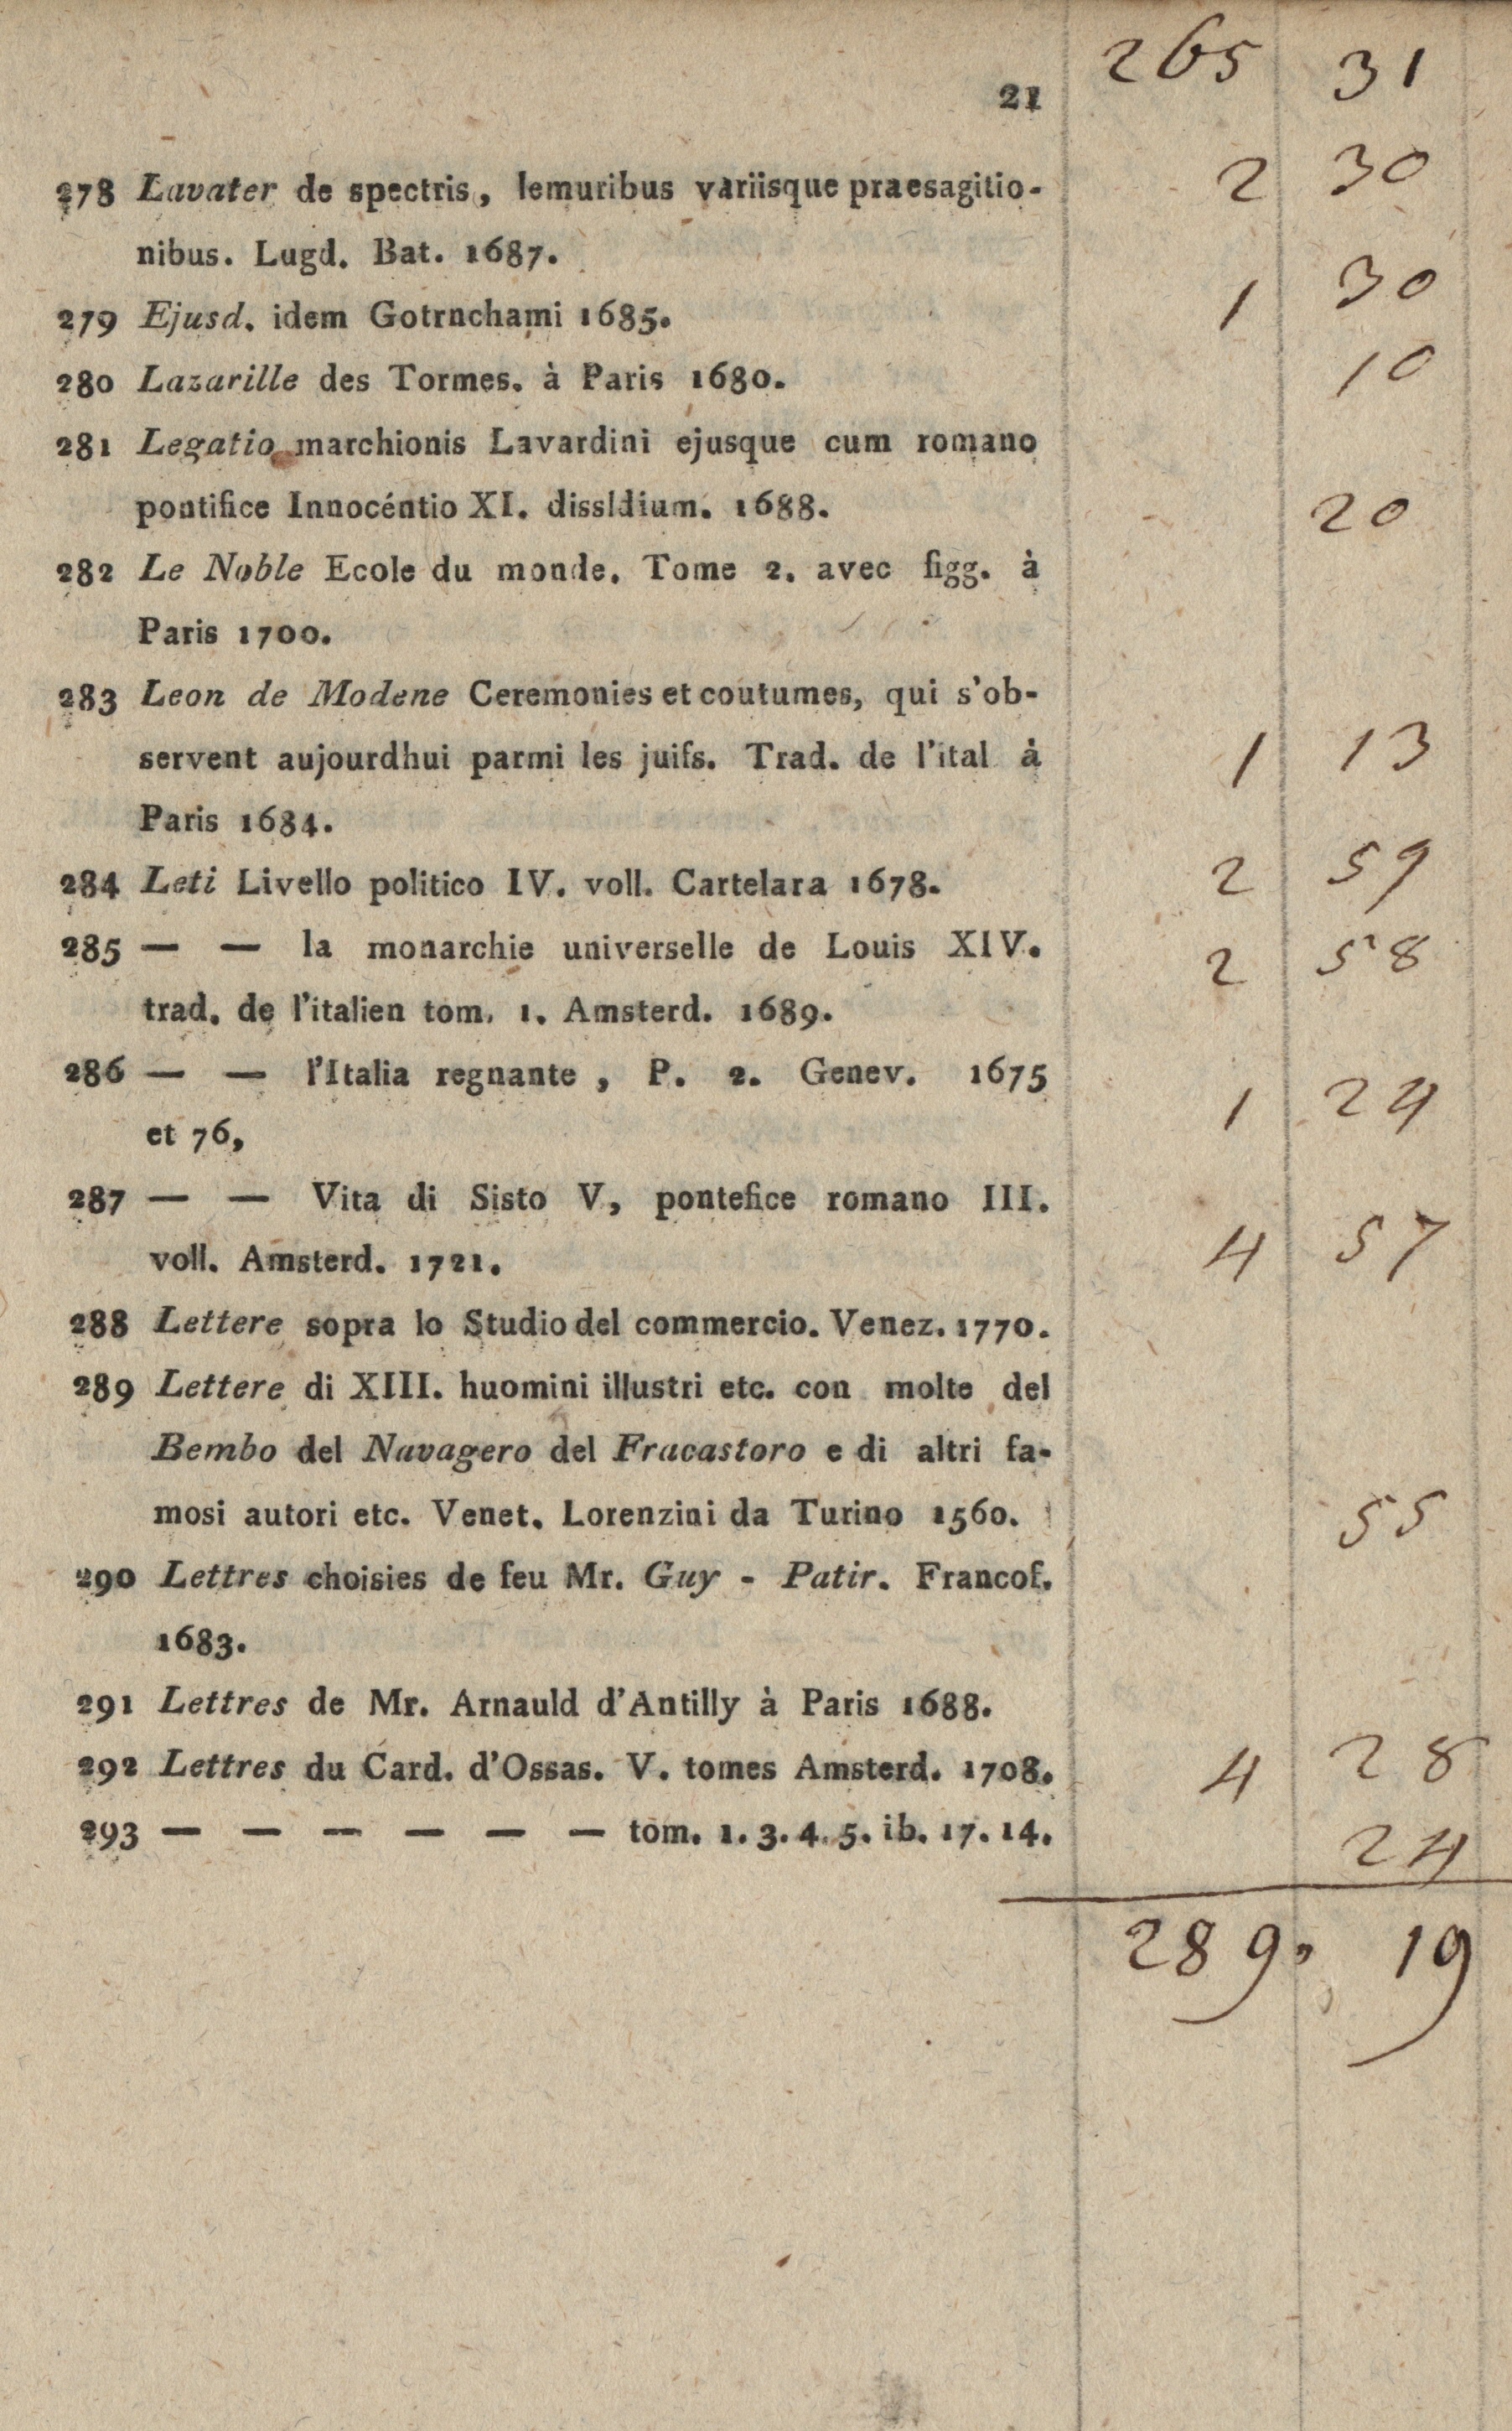 265 31
21
278 Lavater de spectris, lemuribus variisque praesagitio- 2 30
nibus. Lugd. Bat. 1687.
279 Ejusd. idem Gotrnchami 1685. 1 30
280 Lazarille des Tormes. à Paris 1680. 10
281 Legatio marchionis Lavardini ejusque cum romano
pontifice Innocéntio XI. dissidium. 1688. 20
282 Le Noble Ecole du monde. Tome 2. avec figg. à
Paris 1700.
283 Leon de Modene Ceremonies et coutumes, qui s'ob-
servent aujourdhui parmi les juifs. Trad. de l'ital à 1 13
Paris 1684.
284 Leti Livello politico IV. voll. Cartelara 1678. 2 59
285 — — la monarchie universelle de Louis XIV. 2 58
trad. de l'italien tom. 1. Amsterd. 1689.
286 — — l'Italia regnante, P. 2. Genev. 1675 1 24
et 76,
287 — — Vita di Sisto V, pontefice romano III. 4 57
voll. Amsterd. 1721.
288 Lettere sopra lo Studio del commercio. Venez. 1770.
289 Lettere di XIII. huomini illustri etc. con molte del
Bembo del Navagero del Fracastoro e di altri fa-
mosi autori etc. Venet. Lorenzini da Turino 1560. 55
290 Lettres choisies de feu Mr. Guy - Patir. Francof.
1683.
291 Lettres de Mr. Arnauld d'Antilly à Paris 1688.
292 Lettres du Card. d'Ossas. V. tomes Amsterd. 1708. 4 28
293 — — — — — — tom. 1. 3. 4. 5. ib. 17. 14. 24
289, 19